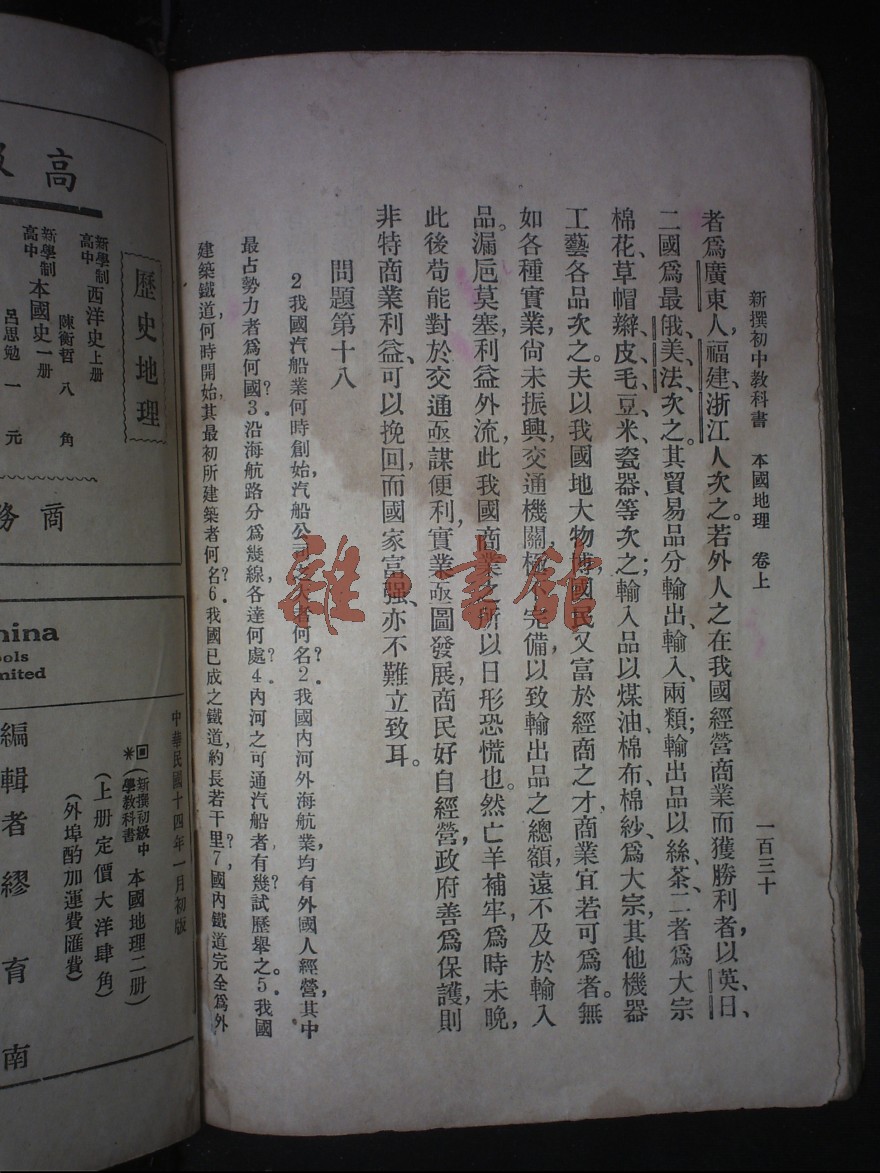 新撰初中教科書 本國地理 卷上 一百三十
者爲廣東人，福建、浙江人次之。若外人之在我國經營商業而獲勝利者，以英、日、
二國爲最，俄、美、法、次之。其貿易品分輸出、輸入、兩類；輸出品以絲、茶、二者爲大宗
棉花、草帽辮、皮、毛、豆、米、瓷器、等次之；輸入品以煤油、棉布、棉紗、爲大宗，其他機器
工藝各品次之。夫以我國地大物博，國民又富於經商之才，商業宜若可爲者。無
如各種實業，尙未振興，交通機關，極不完備，以致輸出品之總額，遠不及於輸入
品。漏巵莫塞，利益外流，此我國商業之所以日形恐慌也。然亡羊補牢，爲時未晚，
此後苟能對於交通亟謀便利，實業亟圖發展，商民好自經營，政府善爲保護，則
非特商業利益、可以挽回，而國家富强、亦不難立致耳。
問題第十八
2 我國汽船業何時創始，汽船公司之大者何名？2.我國內河外海航業，均有外國人經營，其中
最占勢力者爲何國？3.沿海航路分爲幾線，各達何處？4.內河之可通汽船者有幾，試歷舉之。5.我國
建築鐵道，何時開始，其最初所建築者何名？6.我國已成之鐵道，約長若干里？7.國內鐵道，完全爲外
雜·書舘
高
歷史地理
新學制高中 西洋史上册
陳衡哲 八角
新學制高中 本國史一册
呂思勉 一元
商務
hina
ools
mited
中華民國十四年一月初版
(新撰初級中學教科書 本國地理二册)
(上册定價大洋肆角)
(外埠酌加運費匯費)
編輯者 繆育南